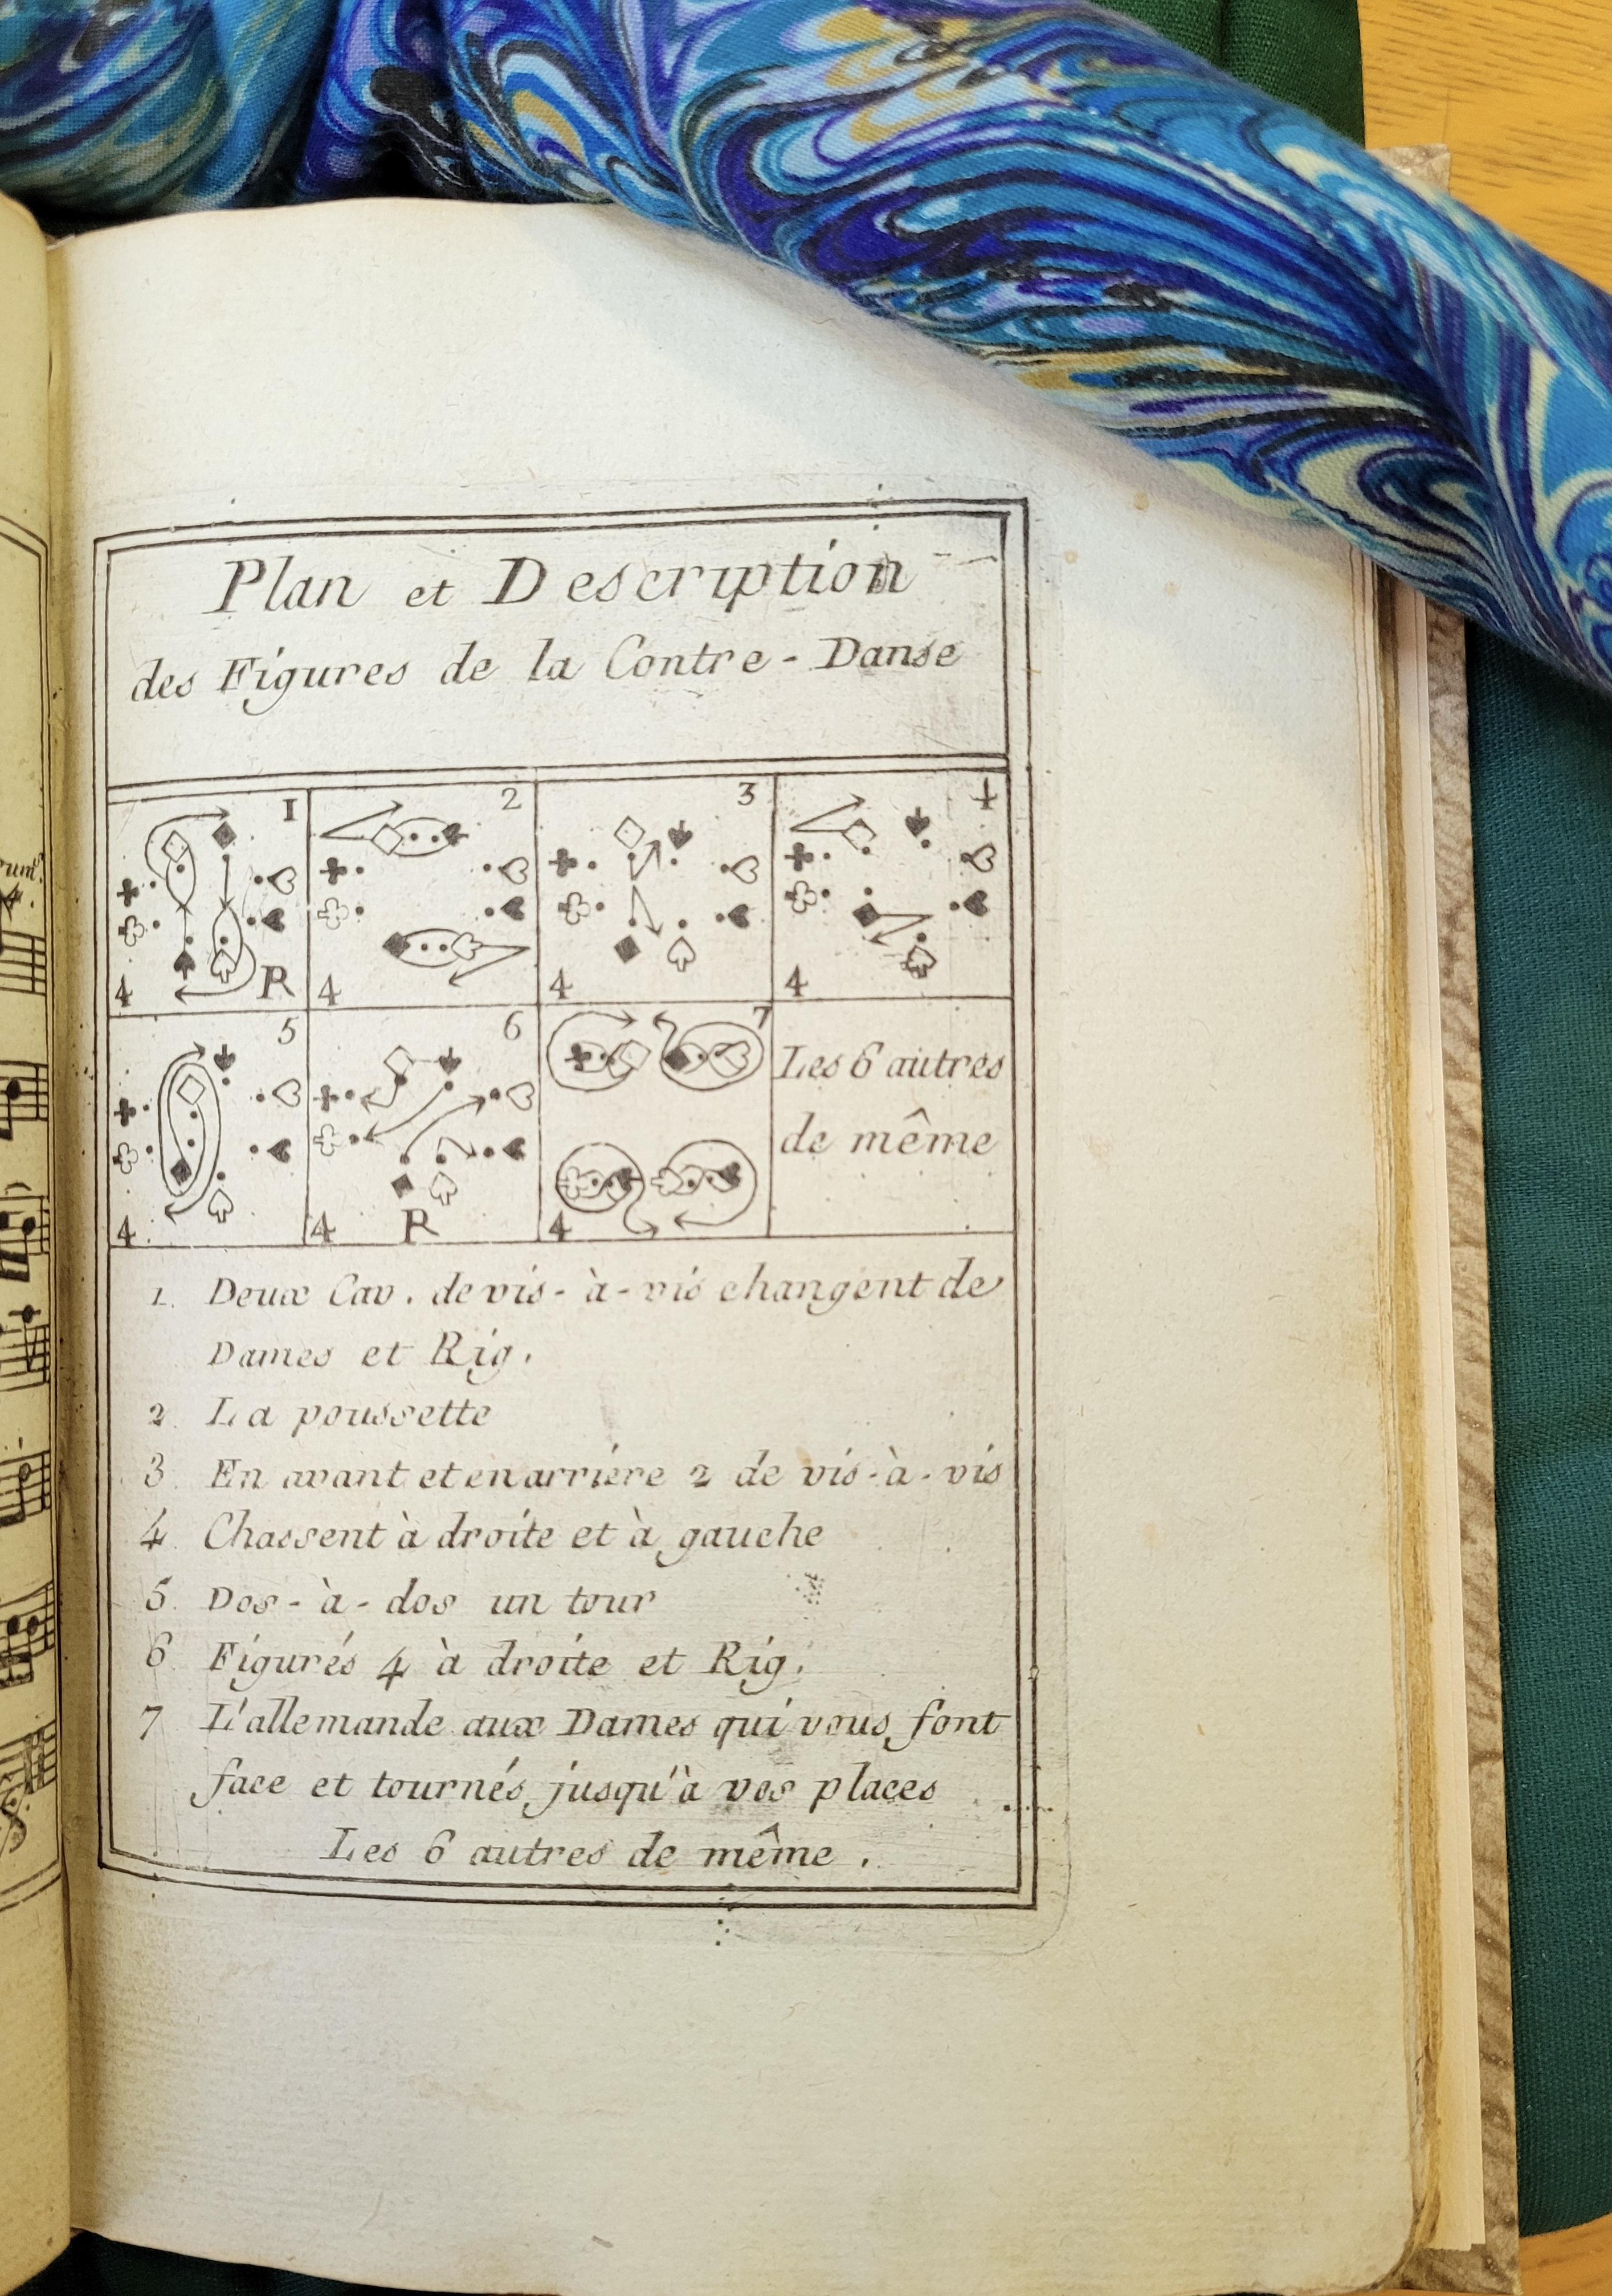 Plan et Description
des Figures de la Contre-Danse
1
2
3
4
4
R
4
4
4
5
6
7
Les 6 autres
de même
4
4
R
4
1. Deux Cav. de vis-à-vis changent de
Dames et Rig.
2. La poussette
3. En avant et en arriére 2 de vis-à-vis
4. Chassent à droite et à gauche
5. Dos-à-dos un tour
6 Figurés 4 à droite et Rig.
7 L'allemande aux Dames qui vous font
face et tournés jusqu'à vos places
Les 6 autres de même.